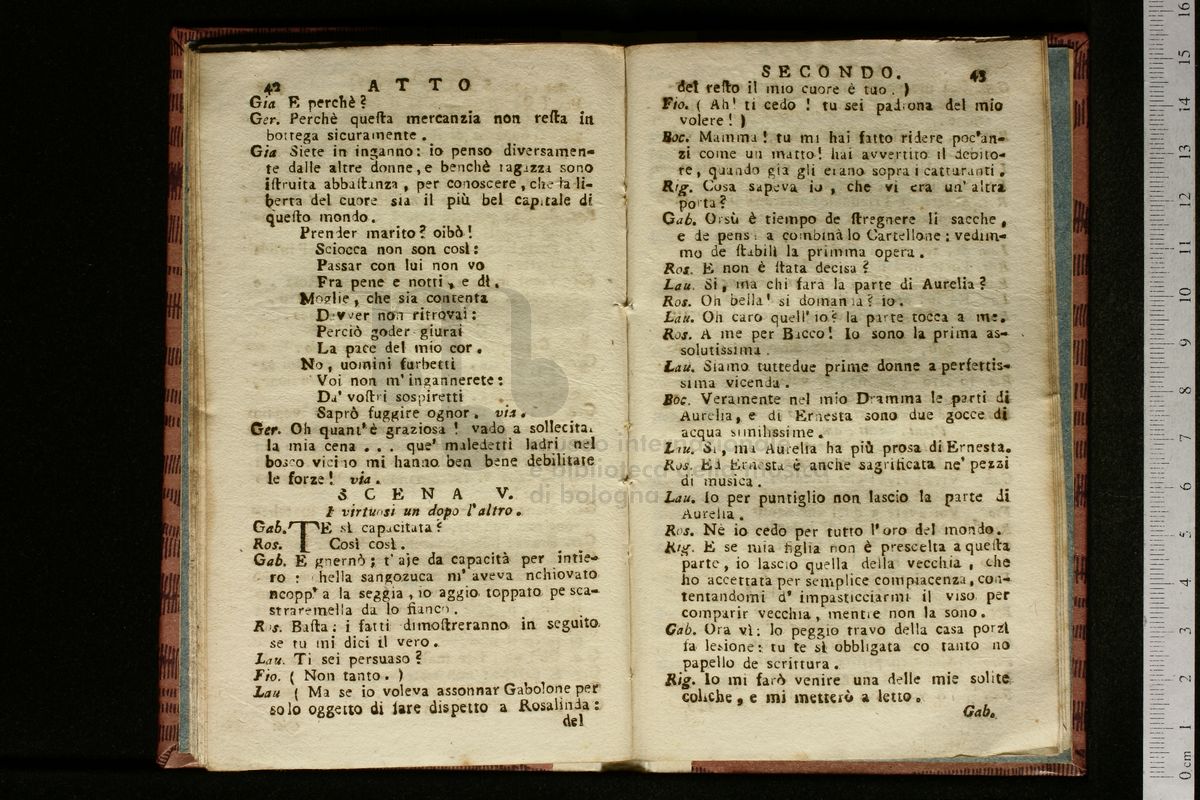 42 ATTO
Gia E perchè?
Ger. Perchè queſta mercanzia non reſta in
bottega sicuramente.
Gia Siete in inganno: io penso diversamen-
te dalle altre donne, e benchè ragazza sono
iſtruita abbaſtanza, per conoscere, che la li-
berta del cuore sia il più bel capitale di
queſto mondo.
Prender marito? oibò!
Sciocca non son così:
Passar con lui non vo
Fra pene e notti, e dì.
Moglie, che sia contenta
Davver non ritrovai:
Perciò goder giurai
La pace del mio cor.
No, uomini furbetti
Voi non m'ingannerete:
Da' voſtri sospiretti
Saprò fuggire ognor. via.
Ger. Oh quant'è graziosa! vado a sollecitar
la mia cena ... que' maledetti ladri nel
bosco vicino mi hanno ben bene debilitate
le forze! via.
SCENA V.
I virtuosi un dopo l'altro.
Gab. TE sì capacitata?
Ros. Così così.
Gab. E gnernò; t'aje da capacità per intie-
ro: chella sangozuca m'aveva nchiovato
ncopp'a la seggia, io aggio toppato pe sca-
straremella da lo fianco.
Ros. Baſta: i fatti dimoſtreranno in seguito
se tu mi dici il vero.
Lau. Ti sei persuaso?
Fio. ( Non tanto. )
Lau ( Ma se io voleva assonnar Gabolone per
solo oggetto di fare dispetto a Rosalinda:
del
SECONDO. 43
del reſto il mio cuore è tuo. )
Fio. ( Ah! ti cedo! tu sei padrona del mio
volere! )
Boc. Mamma! tu mi hai fatto ridere poc'an-
zi come un matto! hai avvertito il debito-
re, quando già gli erano sopra i catturanti.
Rig. Cosa sapeva io, che vi era un'altra
porta?
Gab. Orsù è tiempo de ſtregnere li sacche,
e de pensà a combinà lo Cartellone: vedim-
mo de ſtabilì la primma opera.
Ros. E non è ſtata decisa?
Lau. Sì, ma chi farà la parte di Aurelia?
Ros. Oh bella! si domanda? io.
Lau. Oh caro quell'io? la parte tocca a me.
Ros. A me per Bacco! Io sono la prima as-
solutissima.
Lau. Siamo tuttedue prime donne a perfettis-
sima vicenda.
Boc. Veramente nel mio Dramma le parti di
Aurelia, e di Ernesta sono due gocce di
acqua similissime.
Lau. Sì, ma Aurelia ha più prosa di Ernesta.
Ros. Ed Ernesta è anche sagrificata ne' pezzi
di musica.
Lau. Io per puntiglio non lascio la parte di
Aurelia.
Ros. Nè io cedo per tutto l'oro del mondo.
Rig. E se mia figlia non è prescelta a queſta
parte, io lascio quella della vecchia, che
ho accettata per semplice compiacenza, con-
tentandomi d'impasticciarmi il viso per
comparir vecchia, mentre non la sono.
Gab. Ora vì: lo peggio travo della casa porzì
fa lesione: tu te sì obbligata co tanto no
papello de scrittura.
Rig. Io mi farò venire una delle mie solite
coliche, e mi metterò a letto.
Gab.
museo internazionale
e biblioteca della musica
di bologna
0 cm 1 2 3 4 5 6 7 8 9 10 11 12 13 14 15 16